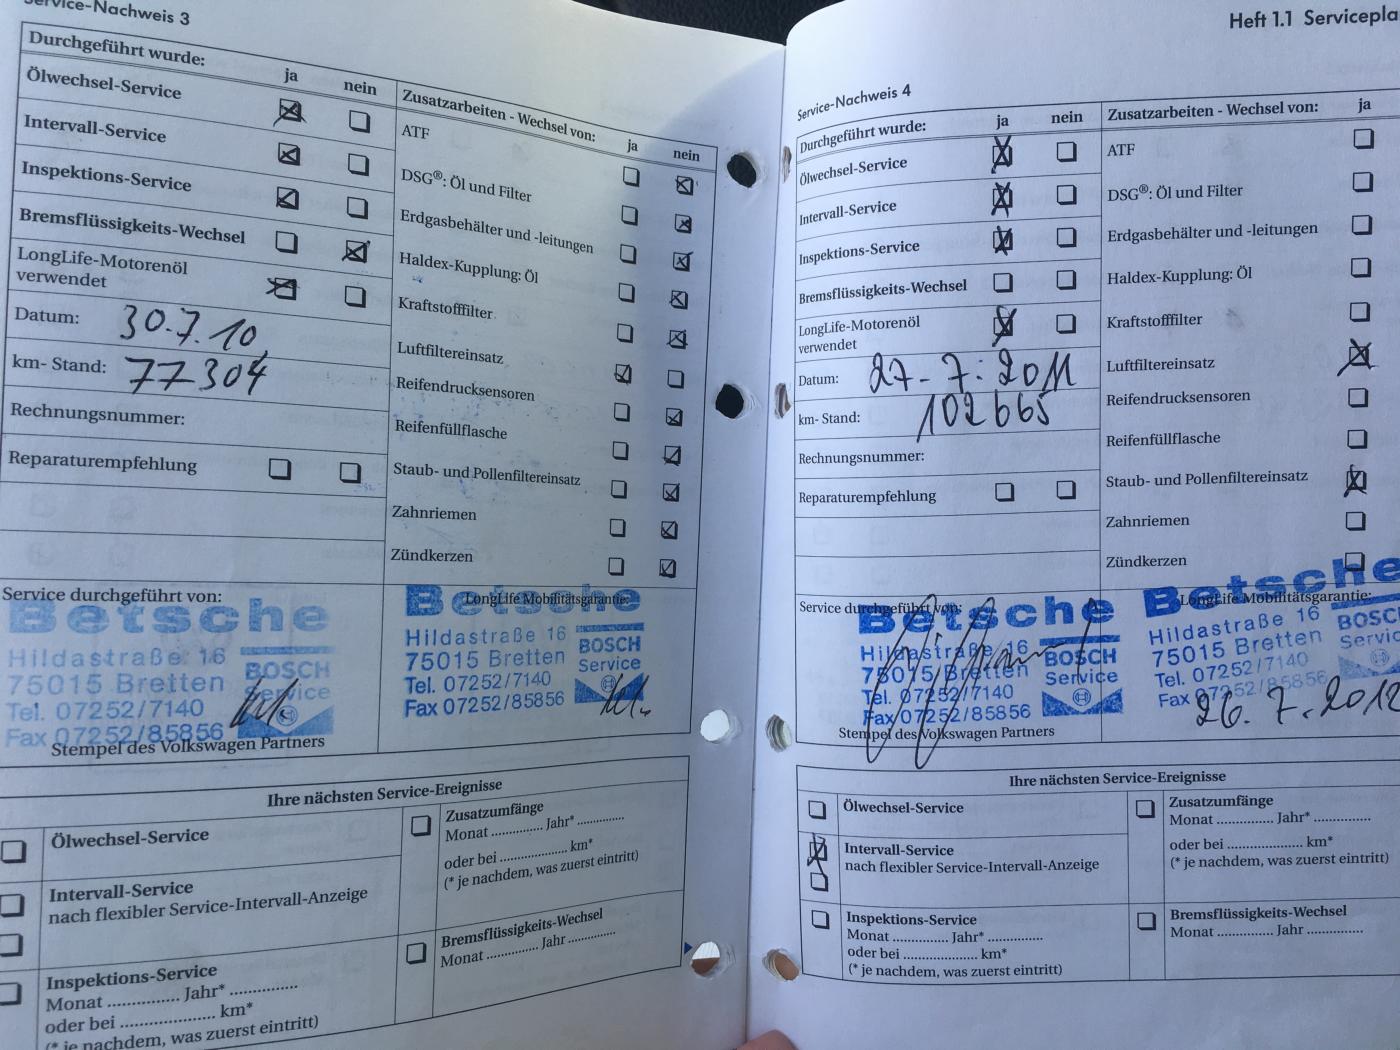 Service-Nachweis 3
Durchgeführt wurde:
ja
nein
Ölwechsel-Service
Intervall-Service
Inspektions-Service
Bremsflüssigkeits-Wechsel
LongLife-Motorenöl
verwendet
Datum: 30.7.10
km- Stand: 77304
Rechnungsnummer:
Reparaturempfehlung
Zusatzarbeiten - Wechsel von:
ja
nein
ATF
DSG®: Öl und Filter
Erdgasbehälter und -leitungen
Haldex-Kupplung: Öl
Kraftstofffilter
Luftfiltereinsatz
Reifendrucksensoren
Reifenfüllflasche
Staub- und Pollenfiltereinsatz
Zahnriemen
Zündkerzen
Service durchgeführt von:
Betsche
Hildastraße 16
75015 Bretten
Tel. 07252/7140
Fax 07252/85856
BOSCH
Service
Stempel des Volkswagen Partners
LongLife Mobilitätsgarantie:
Betsche
Hildastraße 16
75015 Bretten
Tel. 07252/7140
Fax 07252/85856
BOSCH
Service
Ihre nächsten Service-Ereignisse
Ölwechsel-Service
Intervall-Service
nach flexibler Service-Intervall-Anzeige
Inspektions-Service
Monat ............... Jahr* ..............
oder bei .................... km*
(* je nachdem, was zuerst eintritt)
Zusatzumfänge
Monat .............. Jahr* .............
oder bei .................... km*
(* je nachdem, was zuerst eintritt)
Bremsflüssigkeits-Wechsel
Monat .............. Jahr .............
Heft 1.1 Servicepla
Service-Nachweis 4
Durchgeführt wurde:
ja
nein
Ölwechsel-Service
Intervall-Service
Inspektions-Service
Bremsflüssigkeits-Wechsel
LongLife-Motorenöl
verwendet
Datum: 27-7.2011
km- Stand: 102665
Rechnungsnummer:
Reparaturempfehlung
Zusatzarbeiten - Wechsel von:
ja
ATF
DSG®: Öl und Filter
Erdgasbehälter und -leitungen
Haldex-Kupplung: Öl
Kraftstofffilter
Luftfiltereinsatz
Reifendrucksensoren
Reifenfüllflasche
Staub- und Pollenfiltereinsatz
Zahnriemen
Zündkerzen
Service durchgeführt von:
Betsche
Hildastraße 16
75015 Bretten
Tel. 07252/7140
Fax 07252/85856
BOSCH
Service
Stempel des Volkswagen Partners
LongLife Mobilitätsgarantie:
Betsche
Hildastraße 16
75015 Bretten
Tel. 07252/7140
Fax 07252/85856
BOSC
Servic
26.7.2012
Ihre nächsten Service-Ereignisse
Ölwechsel-Service
Intervall-Service
nach flexibler Service-Intervall-Anzeige
Inspektions-Service
Monat .............. Jahr* ..............
oder bei .................... km*
(* je nachdem, was zuerst eintritt)
Zusatzumfänge
Monat .............. Jahr* ..............
oder bei .................... km*
(* je nachdem, was zuerst eintritt)
Bremsflüssigkeits-Wechsel
Monat .............. Jahr ..............